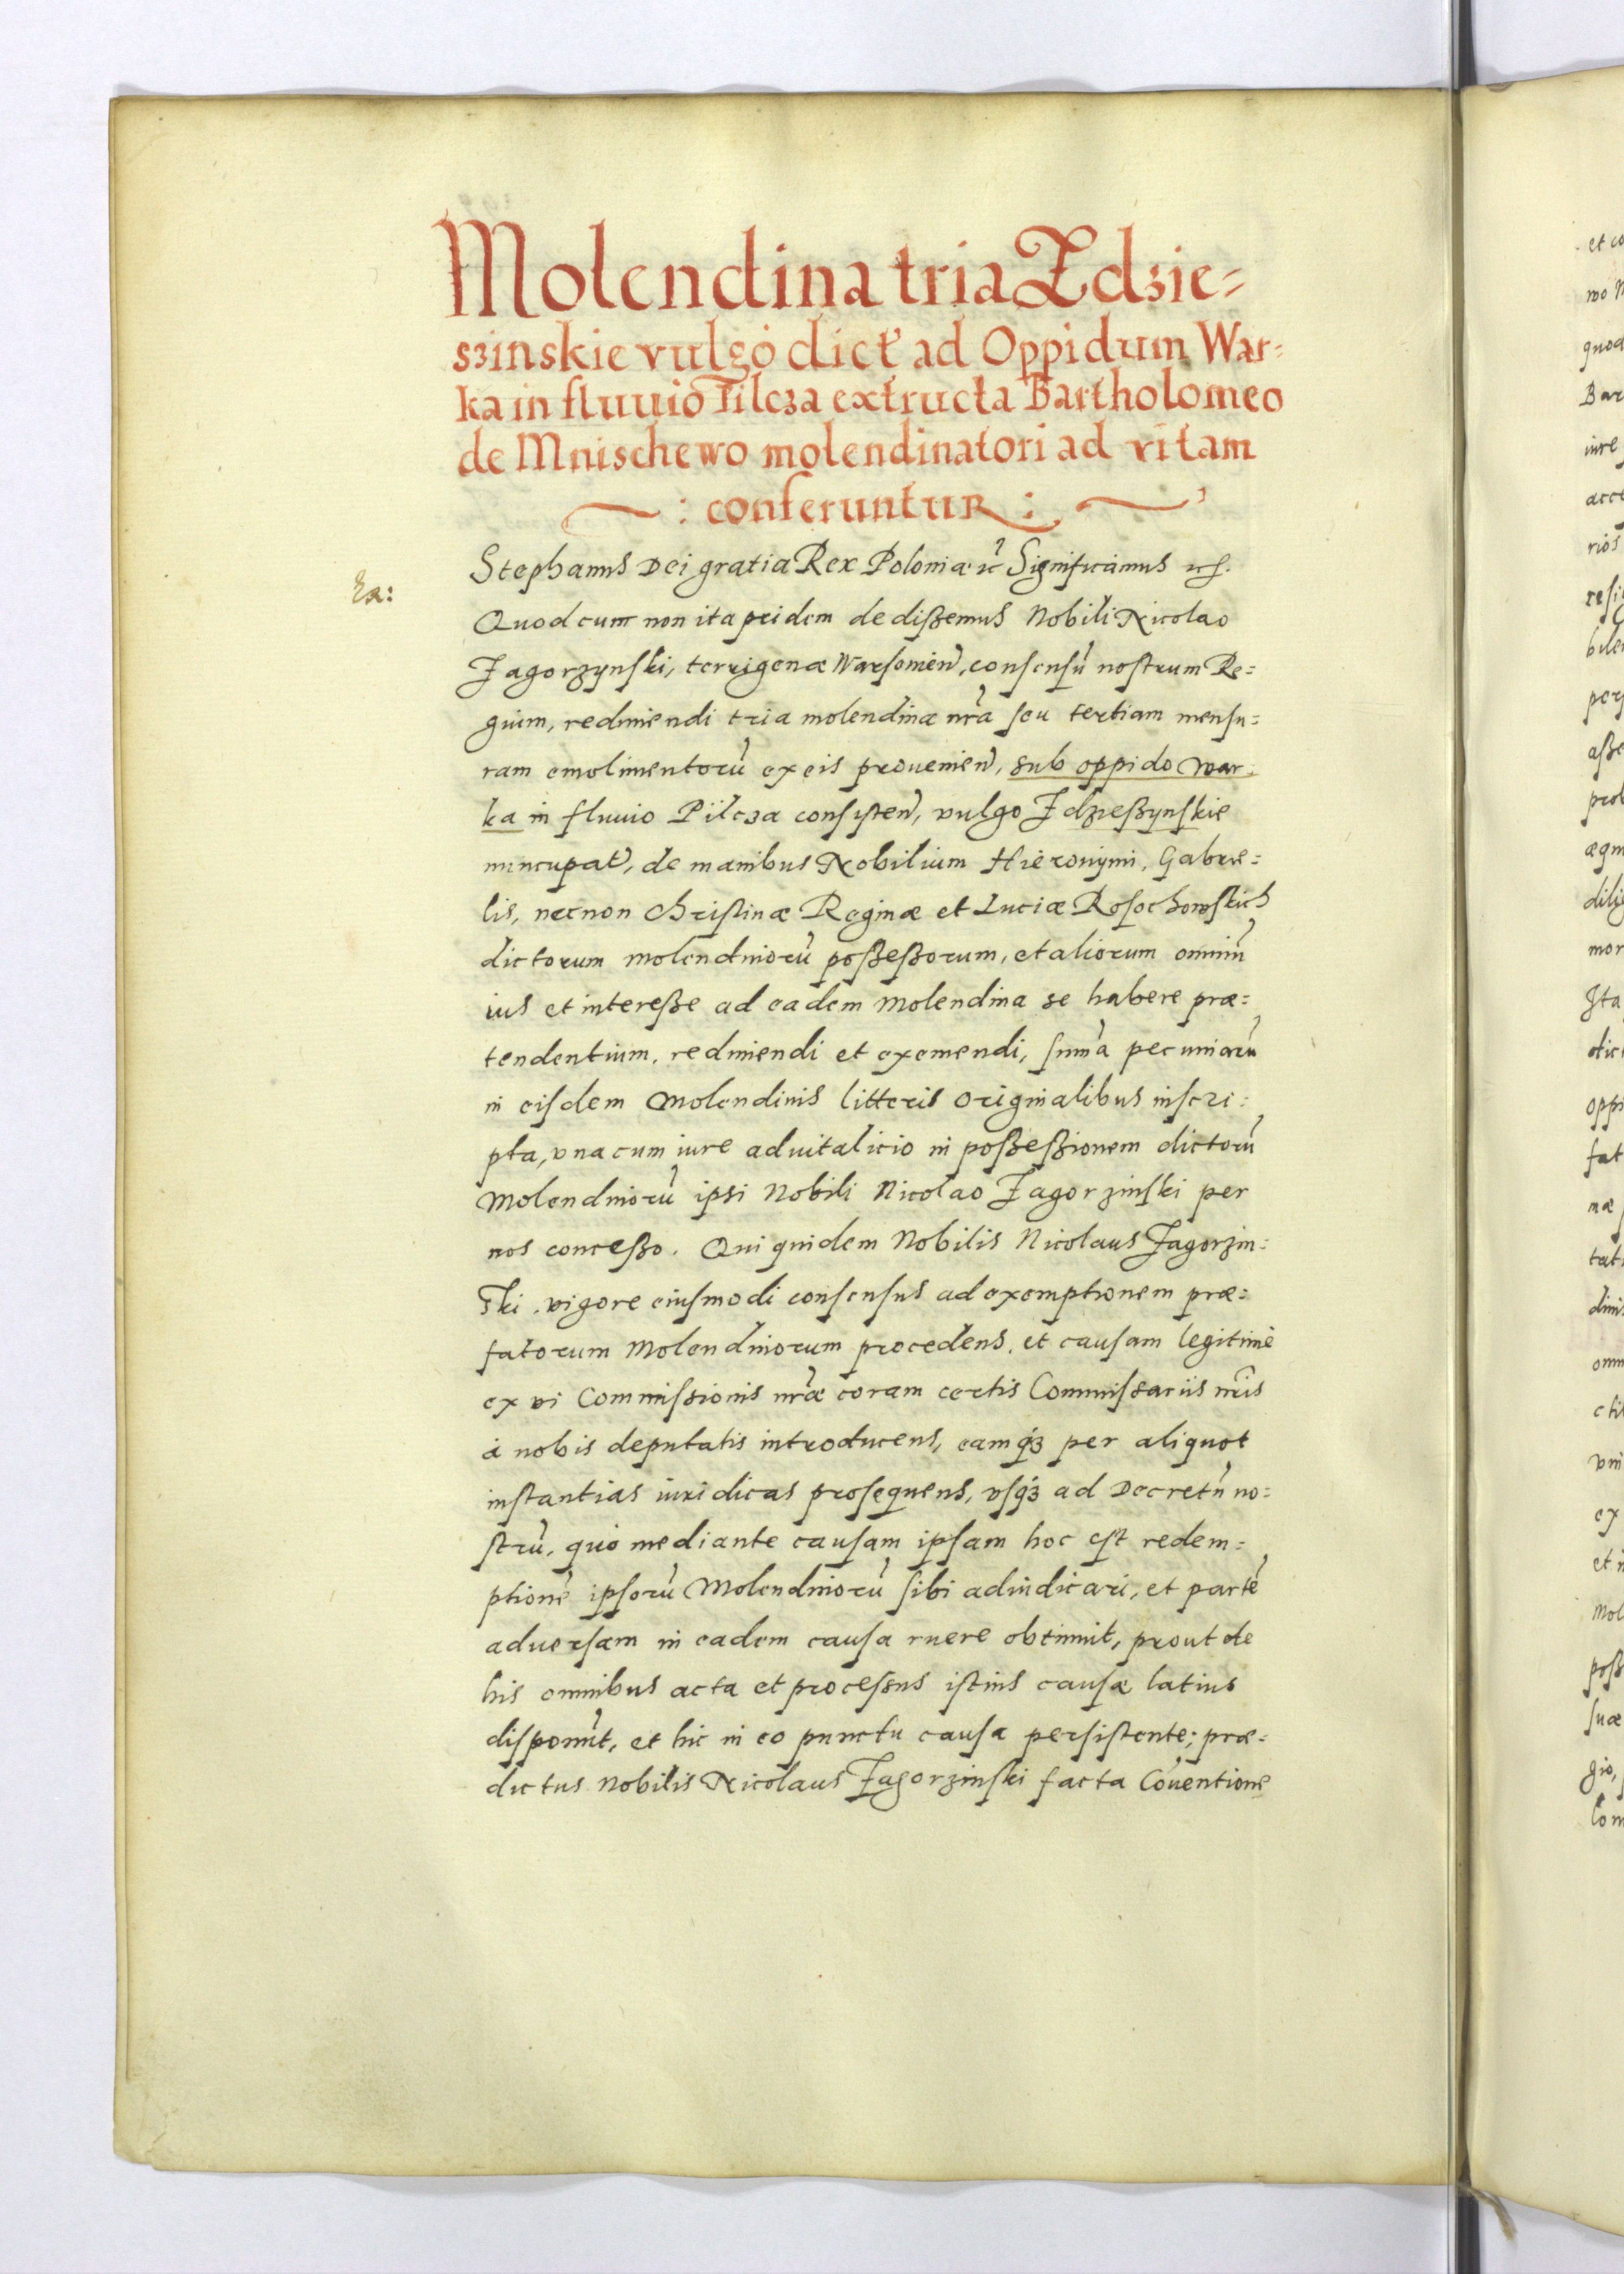 Molendina tria Zdzie=
szinskie vulgo dict' ad Oppidum War=
ka in fluuio Pilcza extructa Bartholomeo
de Mnischewo molendinatori ad vitam
: conferuntur :
Stephanus Dei gratia Rex Poloniæ etc Significamus etc.
Quod cum non ita pridem dedißemus Nobili Nicolao
Zagorzynski, terrigenæ Warsouien̄, consensū nostrum Re=
gium, redimendi tria molendina nr̄a seu tertiam mensu=
ram emolimentorū ex eis prouenien̄, sub oppido War=
ka in fluuio Pilcza consisten̄, vulgo Zdzießynskie
nuncupat̄, de manibus Nobilium Hieronymi, Gabrie=
lis, necnon Christinæ Reginæ et Luciæ Rosochowskich
dictorum molendinorū poßeßorum, et aliorum omniū
ius et intereße ad eadem molendina se habere præ=
tendentium, redimendi et exemendi, sum̄a pecuniarū
in eisdem Molendinis litteris originalibus inscri=
pta, vna cum iure aduitalicio in poßeßionem dictorū
Molendinorū ipsi Nobili Nicolao Zagorzinski per
nos conceßo. Qui quidem Nobilis Nicolaus Zagorzin=
ski, vigore eiusmodi consensus ad exemptionem præ=
fatorum Molendinorum procedens, et causam legitimè
ex vi Commissionis nr̄æ coram certis Commissariis nr̄is
à nobis deputatis introducens, eamqȝ per aliquot
instantias iuridicas prosequens, vsqȝ ad Decretū no=
strū, quo mediante causam ipsam hoc est redem=
ptionē ipsorū Molendinorū sibi adiudicari, et partē
aduersam in eadem causa ruere obtinuit, prout de
his omnibus acta et processus istius causæ latius
disponūt, et hic in eo punctu causa persistente; præ=
dictus Nobilis Nicolaus Zagorzinski facta Cōuentione